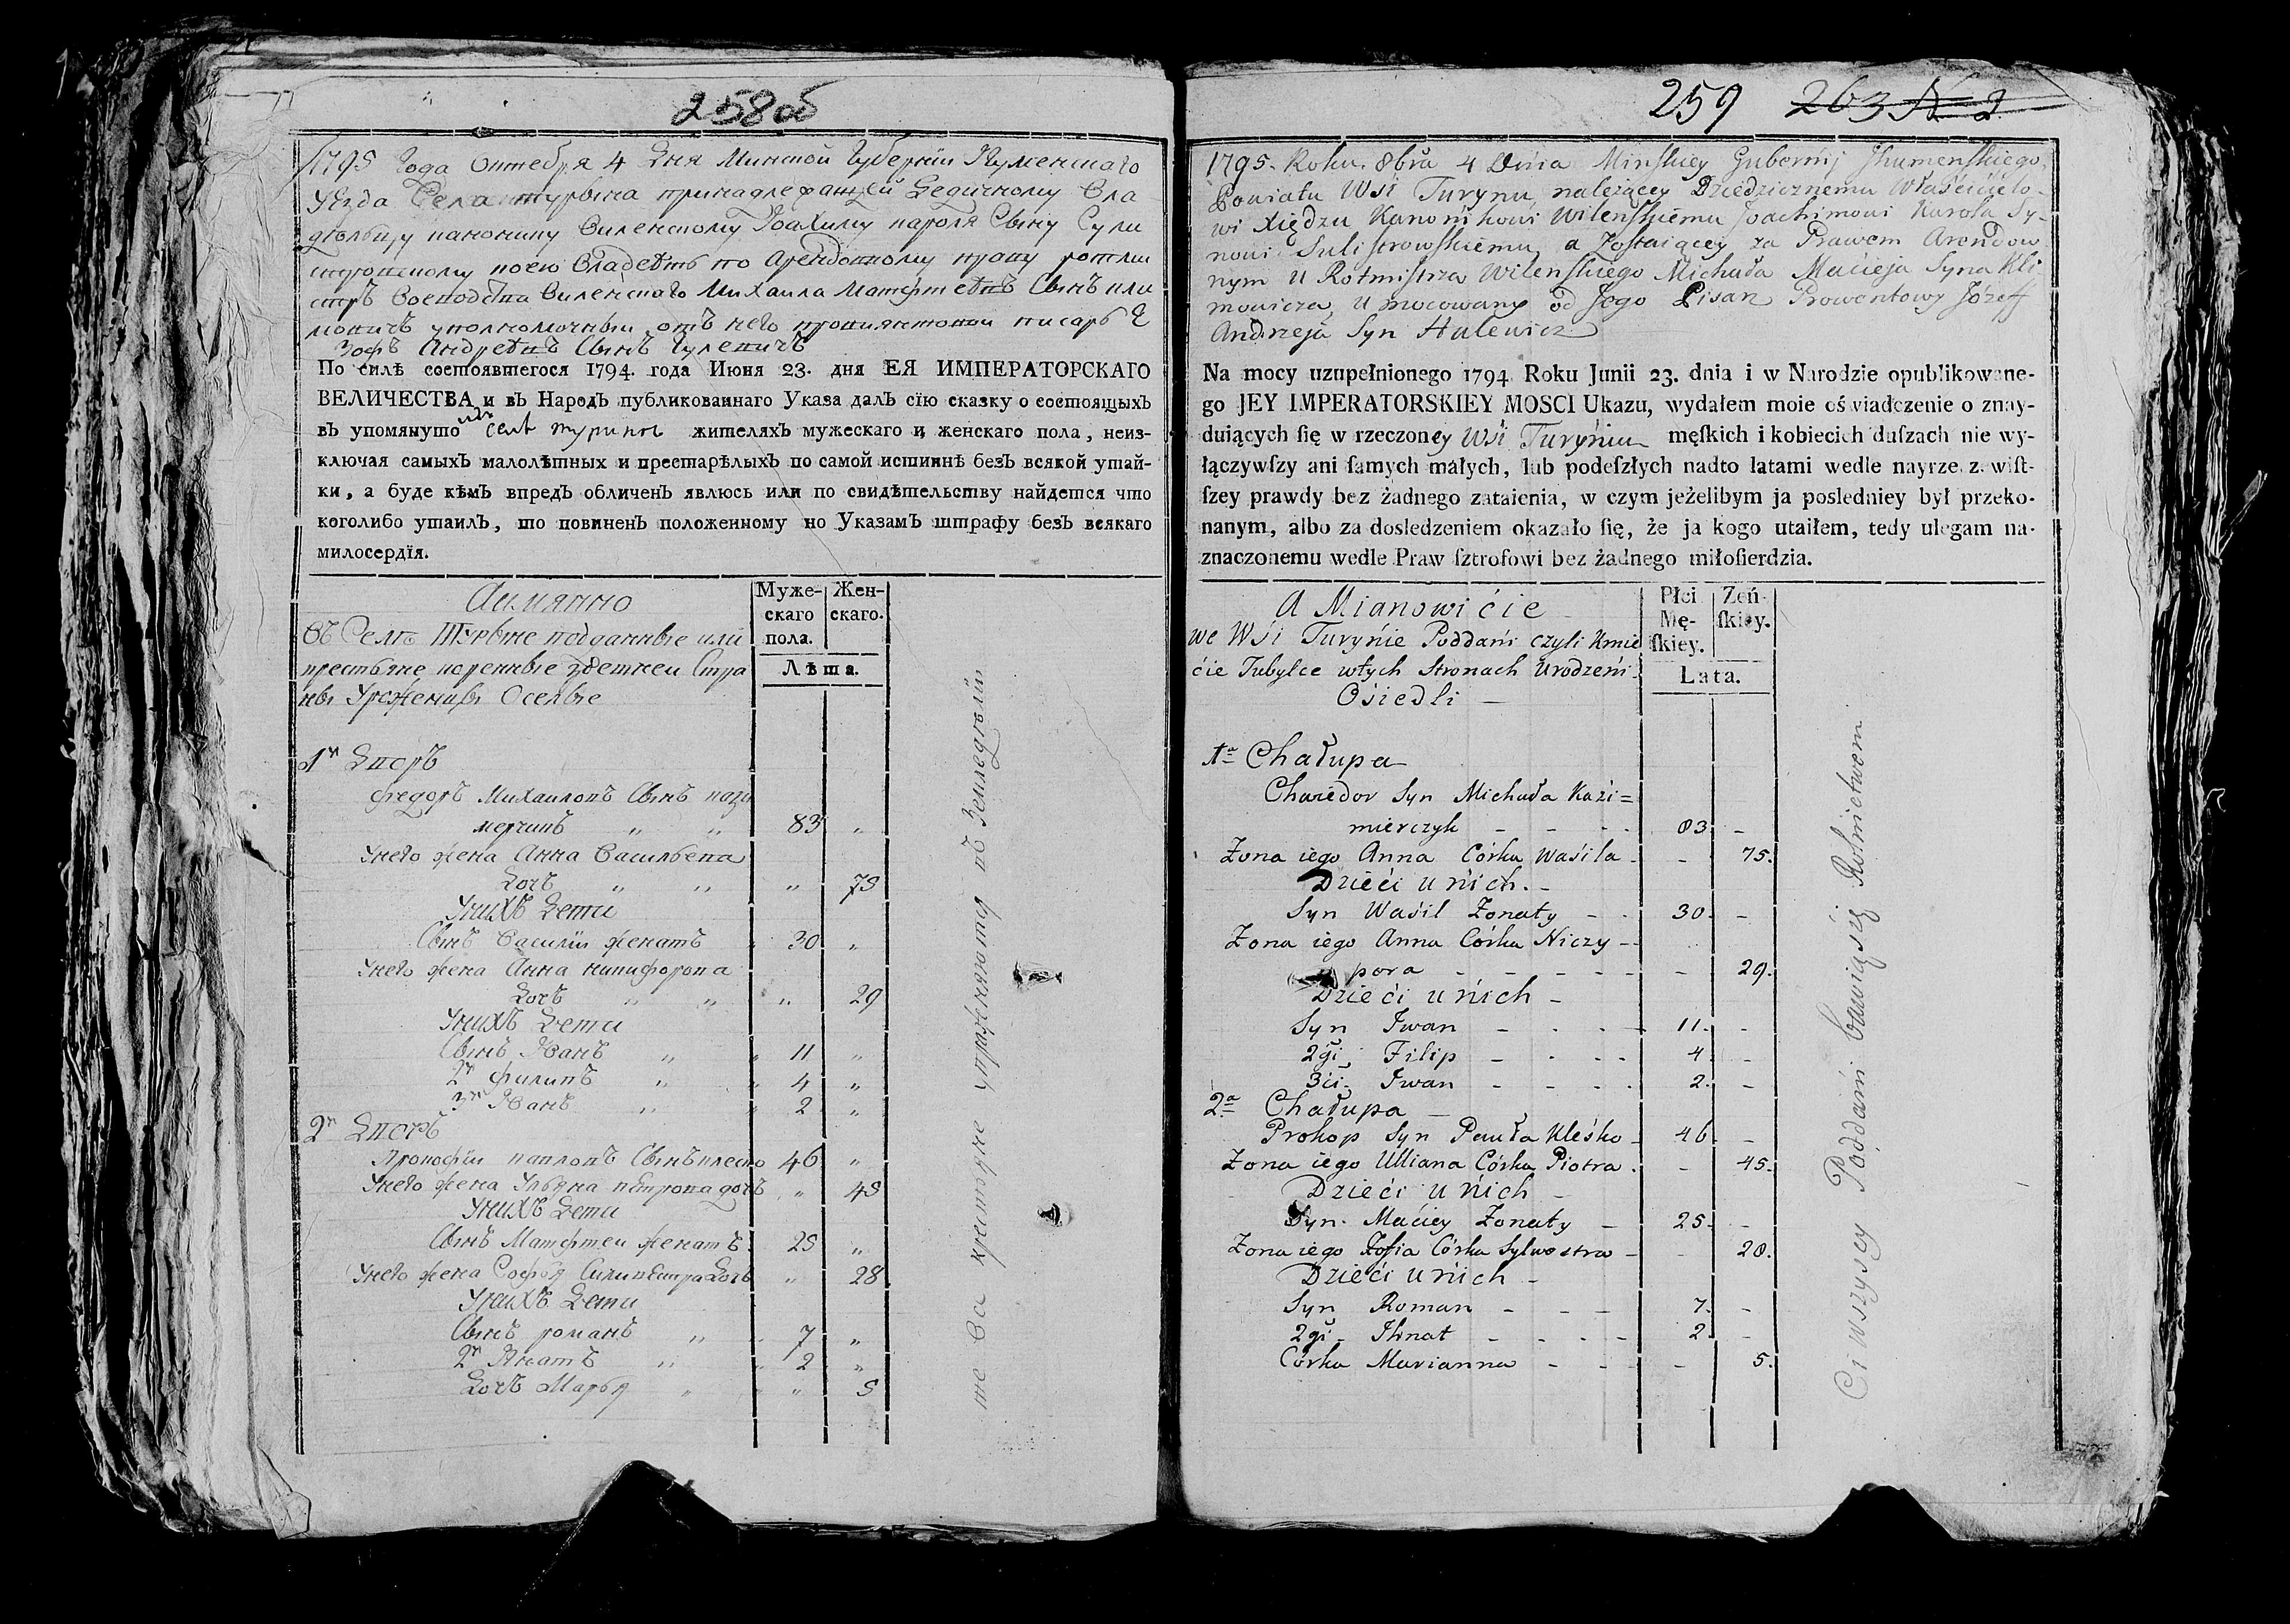 258об
1795 Года Октебря 4 Дня Минской Губернїи Игуменскаго
Уезда Села турына принадлежащей Дедичному Вла
дѣльцу канонику Виленскому Іоахиму Кароля Сыну Сули
стровскому коею Владеетъ по Арендовному праву ротми
стръ Воеводства Виленскаго Михаила Матфтеевъ Сынъ Кли
мовичъ уполномочный отъ него провиянтовой писарь Е
зофъ Андреевъ Сынъ Гулевичъ
По силѣ состоявшегося 1794. года Июня 23. дня ЕЯ ИМПЕРАТОРСКАГО
ВЕЛИЧЕСТВА и въ Народъ публикованнаго Указа далъ сїю сказку о состоящыхъ
въ упомянуто селе турине жителяхъ мужескаго и женскаго пола, неиз-
ключая самыхъ малолѣтных и престарѣлыхъ по самой истиннѣ безъ всякой утай-
ки, а буде кѣмъ впредъ обличенъ явлюсь или по свидѣтельству найдется что
коголибо утаилъ, то повиненъ положенному по Указамъ штрафу безъ всякаго
милосердїя.
Аимянно
Въ Селе Турыне подданные или
крестьяне коренные здешней Стра
ны Уроженцы Оселые
Муже-
скаго
пола.
Жен-
скаго.
Лѣта.
1й Дворъ
Федоръ Михаиловъ Сынъ кази
мерчикъ " " 83 "
Унего жена Анна Васильева
Дочь " " " 75
Унихъ Дети
Сынъ Василій женатъ 30 "
Унего жена Анна никифорова
Дочь " " " 29
Унихъ Дети
Сынъ Иванъ " 11 "
2й Филипъ " 4 "
3й Иванъ " 2 "
2й Дворъ
Прокофїй павловъ Сынъ клеско 46 "
Унего жена Ульяна петрова дочь " 45
Унихъ Дети
Сынъ Матфтей женатъ 25 "
Унего жена Софья Силивестра Дочь " 28
Унихъ Дети
Сынъ романъ " 7 "
2й Игнатъ " 2 "
Дочь Марья " " 5
те Вси крестьяне упражняются въ Земледелїи
259 263 N 2
1795. Roku. 8bra 4 Dnia Minskiey Gubernij Jhumenskiego
Powiatu Wsi Turynu, należącey Dziedzicznemu Właścicielo-
wi Xiędzu Kanonikowi Wilenskiemu Joachimowi Karola Sy-
nowi Sulistrowskiemu, a Zostaiącey za Prawem Arendow
nym u Rotmistrza Wilenskiego Michała Macieja Syna Kli
mowicza, Umocowany od Jego Pisarz Prowentowy Józeff
Andrzeja Syn Hulewicz
Na mocy uzupełnionego 1794 Roku Junii 23. dnia i w Narodzie opublikowane-
go JEY IMPERATORSKIEY MOSCI Ukazu, wydałem moie oświadczenie o znay-
duiących ſię w rzeczoney Wsi Turyniu męſkich i kobiecich duſzach nie wy-
łączywſzy ani ſamych małych, lub podeſzłych nadto latami wedle nayrzeczwiſt-
ſzey prawdy bez żadnego zataienia, w czym jeżelibym ja posledniey był przeko-
nanym, albo za dosledzeniem okazało ſię, że ja kogo utaiłem, tedy ulegam na-
znaczonemu wedle Praw ſztrofowi bez żadnego miłoſierdzia.
A Mianowićie
we Wśi Turyńie Poddańi czyli Kmie
ćie Tubylce wtych Stronach Urodzeńi.
Ośiedli -
Płci
Mę-
ſkiey.
Zeń-
ſkiey.
Lata.
1a Chałupa
Chwiedor Syn Michała Kazi=
mierczyk - - - - 83 -
Zona iego Anna Córka Waśila - - 75.
Dzieći u ńich. -
Syn Waśil Żonaty - - 30. -
Żona iego Anna Córka Niczy-
pora - - - - - - 29.
Dzieći u ńich -
Syn Jwan - - - 11. -
2gi. Filip - - - - 4. -
3ći. Jwan - - - - 2. -
2a Chałupa -
Prokop Syn Pawła Kleśko - 46. -
Żona iego Ulliana Córka Piotra. - 45.
Dzieći u ńich -
Syn. Maćiey Żonaty - 25. -
Żona iego Zofia Córka Sylwestra - - 28.
Dzieći u ńich -
Syn Roman - - - 7. -
2gi - Ihnat - - - - 2. -
Córka Marianna - - - - 5.
Ci wszyscy Poddańi bawią się Rolnictwem